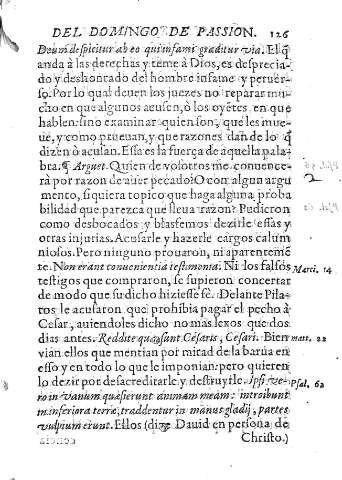 DEL DOMINGO DE PASSION. 126
Deum despicitur ab eo qui infami graditur via. El q̃
anda à las derechas y teme à Dios, es desprecia-
do y deshonrado del hombre infame y peruer-
so. Por lo qual deuen los juezes no reparar mu-
cho en que algunos acusen, ò los oyẽtes en que
hablen: sino examinar quien son, que les mue-
ue, y como prueuan, y que razones dan de lo q̃
dizen ò acusan. Essa es la fuerça de aquella pala-
bra. ¶ Arguet. Quien de vosotros me conuence-
rà por razon de auer pecado? O con algun argu
mento, si quiera topico que haga alguna proba
bilidad que parezca que lleua razon? Pudieron
como desbocados y blasfemos dezirle essas y
otras injurias. Acusarle y hazerle cargos calum
niosos. Pero ninguno prouaron, ni aparentemẽ
te. Non erant conuenientia testimonia. Ni los falsos Marci. 14
testigos que compraron, se supieron concertar
de modo que su dicho hiziesse fè. Delante Pila-
tos le acusaron que prohibia pagar el pecho à
Cesar, auiendoles dicho no mas lexos que dos
dias antes. Reddite quæ sunt Cæsaris, Cæsari. Bien mat. 22
vian ellos que mentian por mitad de la barua en
esso y en todo lo que le imponian: pero quieren
lo dezir por desacreditarle y destruyrle. Ipsi ve- Psal. 62
ro in vanum quæsierunt animam meam: introibunt
in inferiora terræ, traddentur in manus gladij, partes
vulpium erunt. Ellos (dize Dauid en persona de
Christo.)